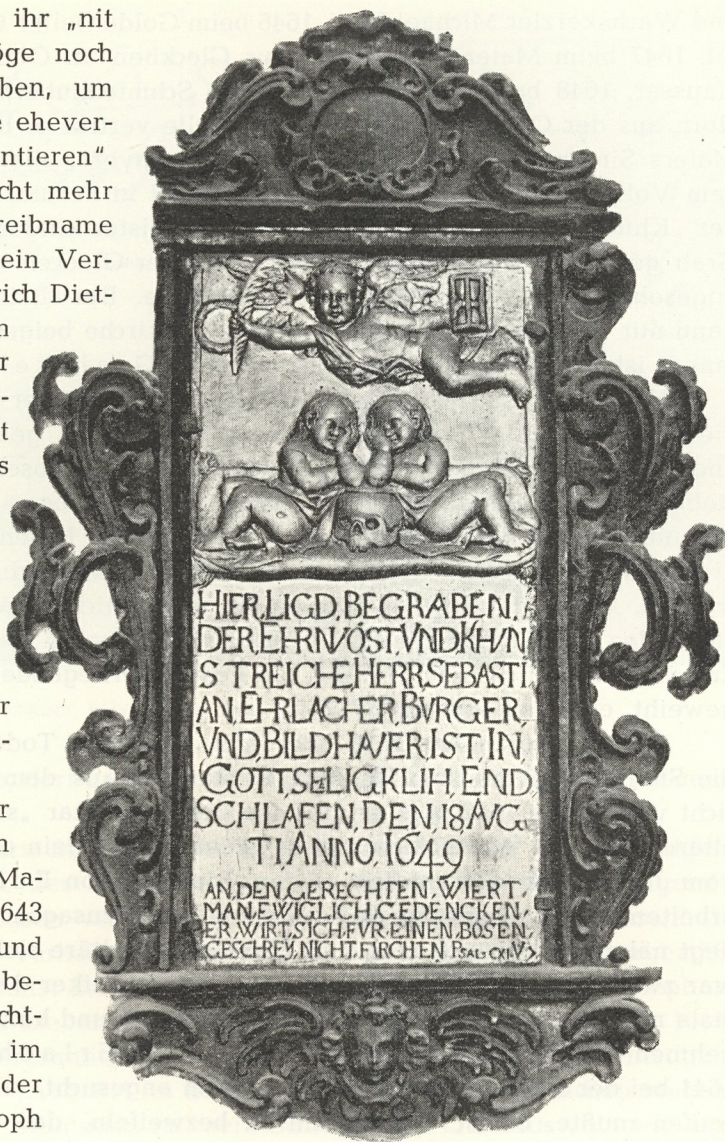 ihr „nit
öge noch
ben, um
e ehever-
ntieren“.
cht mehr
reibname
ein Ver-
rich Diet-
n
r
-
t
s
HIER,LIGD,BEGRABEN,
DER,EHRNVÖST,VND,KHVN
STREICHE,HERR,SEBASTI
AN,EHRLACHER,BVRGER,
VND,BILDHAVER,IST,IN,
GOTT,SELIGKLIH,END
SCHLAFEN,DEN,18,AVG,
TI,ANNO,1649
AN,DEN,GERECHTEN,WIERT,
MAN,EWIGLICH,GEDENCKEN,
ER,WIRT,SICH,FVR,EINEN,BÖSEN
GESCHREY,NICHT,FIRCHTEN
r
-
r
n
Ma-
643
und
be-
cht-
im
der
oph